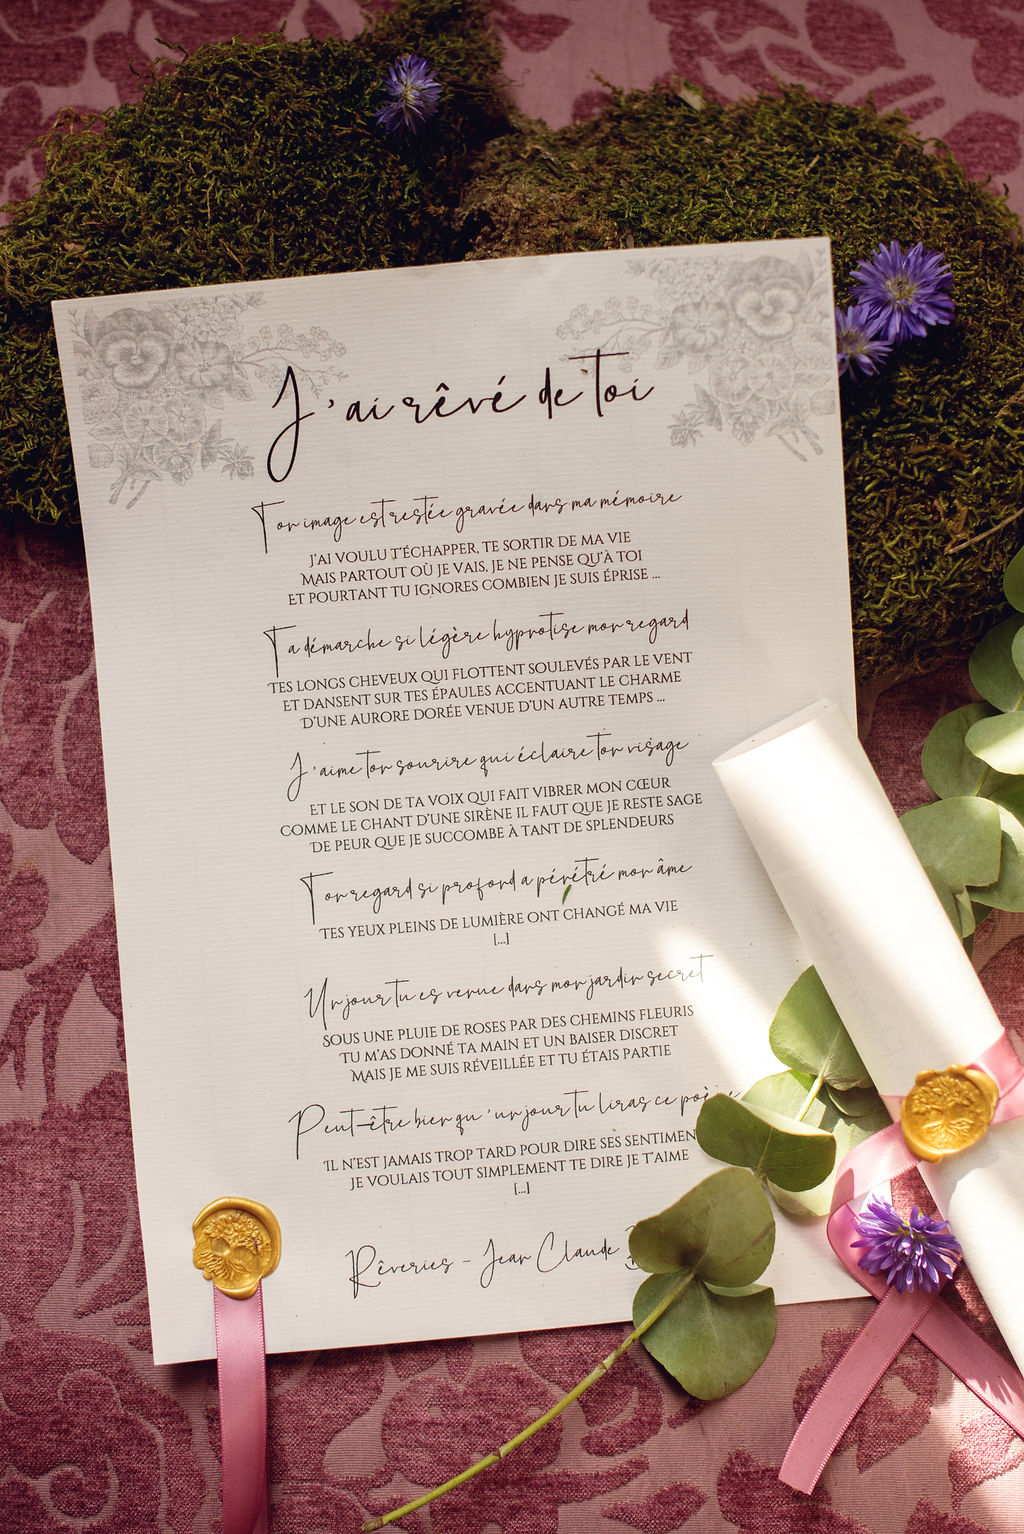 J'ai rêvé de toi
Ton image est restée gravée dans ma mémoire
J'AI VOULU T'ÉCHAPPER, TE SORTIR DE MA VIE
MAIS PARTOUT OÙ JE VAIS, JE NE PENSE QU'À TOI
ET POURTANT TU IGNORES COMBIEN JE SUIS ÉPRISE ...
Ta démarche si légère hypnotise mon regard
TES LONGS CHEVEUX QUI FLOTTENT SOULEVÉS PAR LE VENT
ET DANSENT SUR TES ÉPAULES ACCENTUANT LE CHARME
D'UNE AURORE DORÉE VENUE D'UN AUTRE TEMPS ...
J'aime ton sourire qui éclaire ton visage
ET LE SON DE TA VOIX QUI FAIT VIBRER MON CŒUR
COMME LE CHANT D'UNE SIRÈNE IL FAUT QUE JE RESTE SAGE
DE PEUR QUE JE SUCCOMBE À TANT DE SPLENDEURS
Ton regard si profond a pénétré mon âme
TES YEUX PLEINS DE LUMIÈRE ONT CHANGÉ MA VIE
[...]
Un jour tu es venue dans mon jardin secret
SOUS UNE PLUIE DE ROSES PAR DES CHEMINS FLEURIS
TU M'AS DONNÉ TA MAIN ET UN BAISER DISCRET
MAIS JE ME SUIS RÉVEILLÉE ET TU ÉTAIS PARTIE
Peut-être bien qu'un jour tu liras ce poème
IL N'EST JAMAIS TROP TARD POUR DIRE SES SENTIMEN
JE VOULAIS TOUT SIMPLEMENT TE DIRE JE T'AIME
[...]
Rêveries - Jean Claude